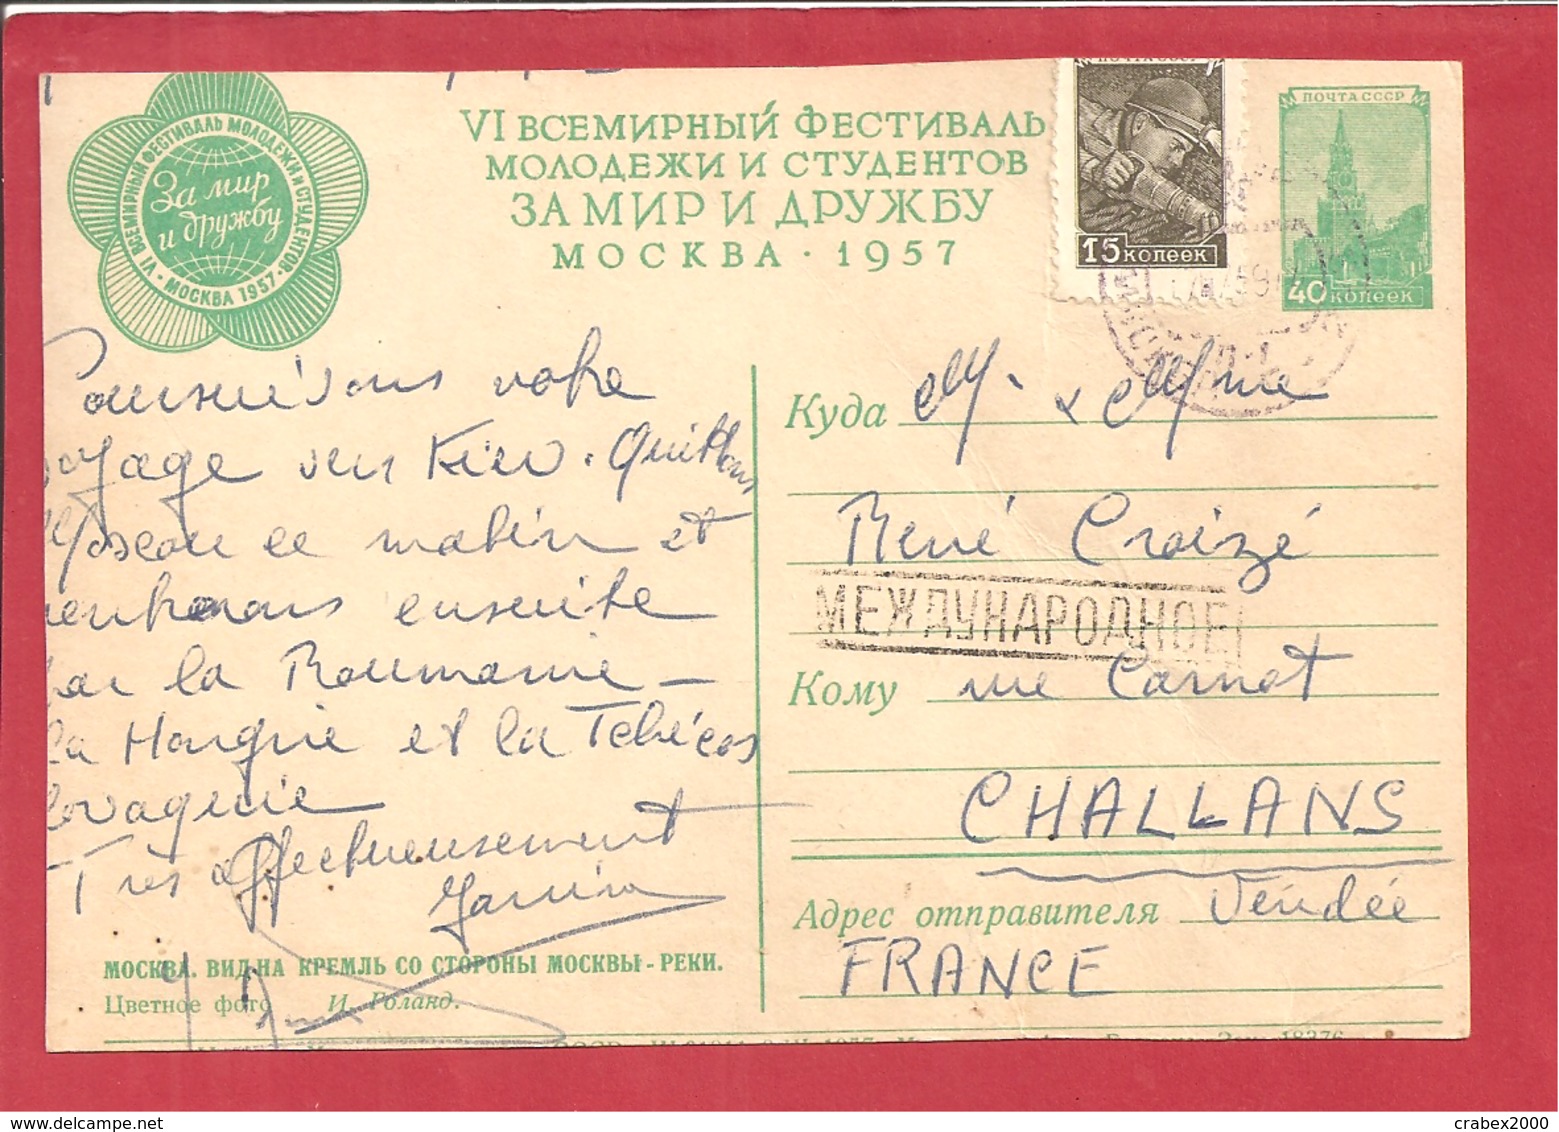 VI ВСЕМИРНЫЙ ФЕСТИВАЛЬ МОЛОДЕЖИ И СТУДЕНТОВ
За мир
и дружбу
• МОСКВА 1957 •
VI ВСЕМИРНЫЙ ФЕСТИВАЛЬ
МОЛОДЕЖИ И СТУДЕНТОВ
ЗА МИР И ДРУЖБУ
МОСКВА · 1957
ПОЧТА СССР
15 копеек
ПОЧТА СССР
40 копеек
Poursuivons votre
voyage vers Kiev. Quittons
Moscou ce matin et
rentrerons ensuite
par la Roumanie –
la Hongrie et la Tchécos
lovaquie
Très affectueusement
Куда M. & Mme
René Croizé
МЕЖДУНАРОДНОЕ
Кому rue Carnot
CHALLANS
Адрес отправителя Vendée
FRANCE
МОСКВА. ВИД НА КРЕМЛЬ СО СТОРОНЫ МОСКВЫ-РЕКИ.
Цветное фото И. Голанд.
18376
crabex2000